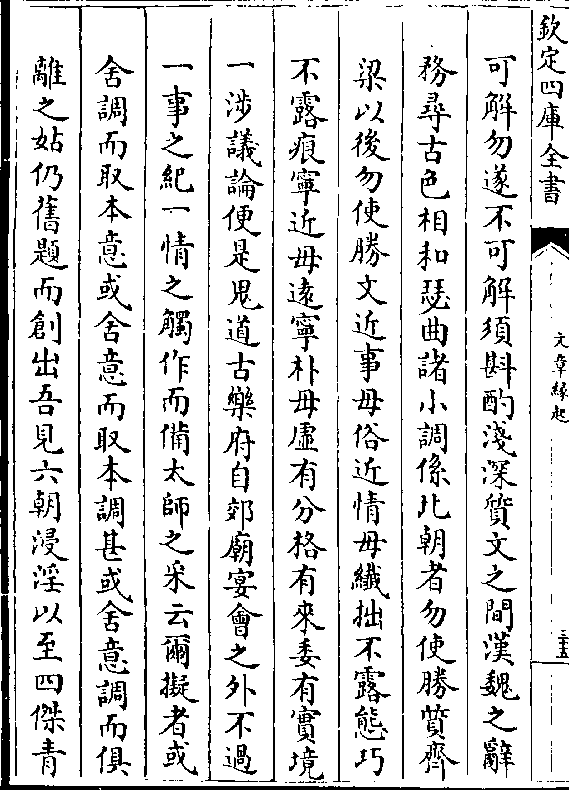 欽定四庫全書
文章緣起
三五
可解勿遂不可解須斟酌淺深質文之間漢魏之辭
務尋古色相和瑟曲諸小調係北朝者勿使勝質齊
梁以後勿使勝文近事毋俗近情毋纖拙不露態巧
不露痕寧近毋遠寧朴毋虛有分格有來委有實境
一涉議論便是鬼道古樂府自郊廟宴會之外不過
一事之紀一情之觸作而備太師之采云爾擬者或
舍調而取本意或舍意而取本調甚或舍意調而俱
離之姑仍舊題而創出吾見六朝浸淫以至四傑青